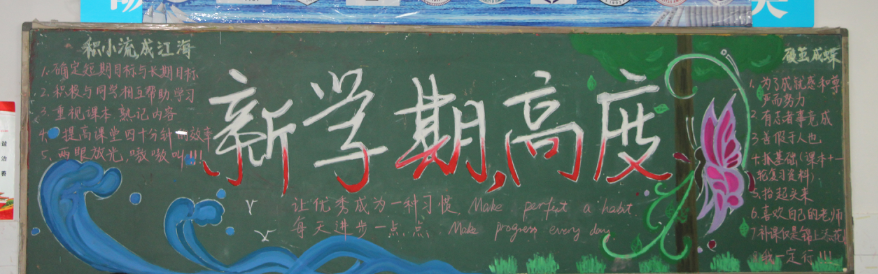 积小流成江海
1、确定短期目标与长期目标
2、积极与同学相互帮助学习
3、重视课本、熟记内容
4、提高课堂四十分钟的效率
5、两眼放光,嗷嗷叫!!!
新学期,高度
让优秀成为一种习惯 Make perfect a habit
每天进步一点点 Make progress every day
破茧成蝶
1、为了成就感和尊
严而努力
2、有志者事竟成
3、善假于人也
4、抓基础(课本+一
轮复习资料)
5、抬起头来
6、喜欢自己的老师
7、补课仅是锦上添花
一定行!!!